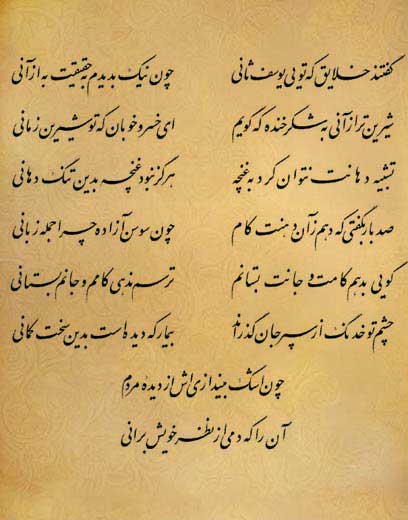 گفتند خلایق که تویی یوسف ثانی چون نیک بدیدم به حقیقت به از آنی
شیرین تر از آنی به شکر خنده که گویم ای خسرو خوبان که تو شیرین زمانی
تشبیه دهانت نتوان کرد به غنچه هرگز نبود غنچه بدین تنگ دهانی
صد بار بگفتی که دهم زان دهنت کام چون سوسن آزاده چرا جمله زبانی
گویی بدهم کامت و جانت بستانم ترسم ندهی کامم و جانم بستانی
چشم تو خدنگ از سپر جان گذراند بیمار که دیده است بدین سخت کمانی
چون اشک بیندازی اش از دیده مردم
آن را که دمی از نظر خویش برانی